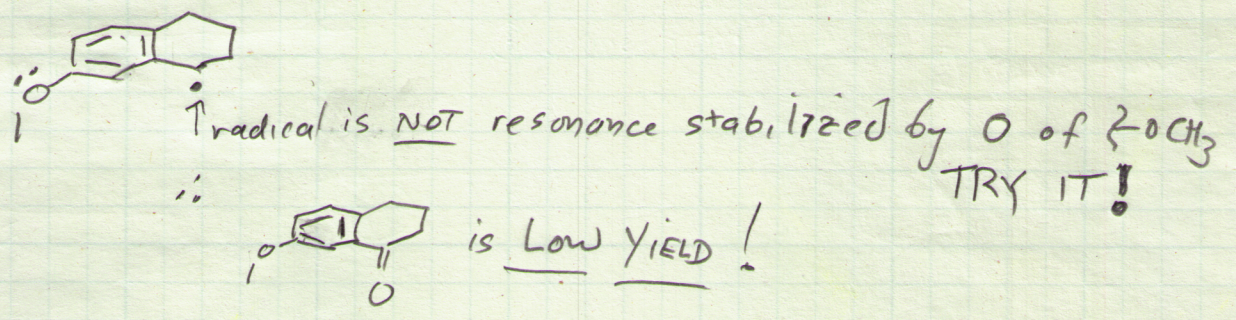 Ö
↑ radical is NOT resonance stabilized by O of ξ-OCH₃
TRY IT!
∴
O is LOW YIELD!
O